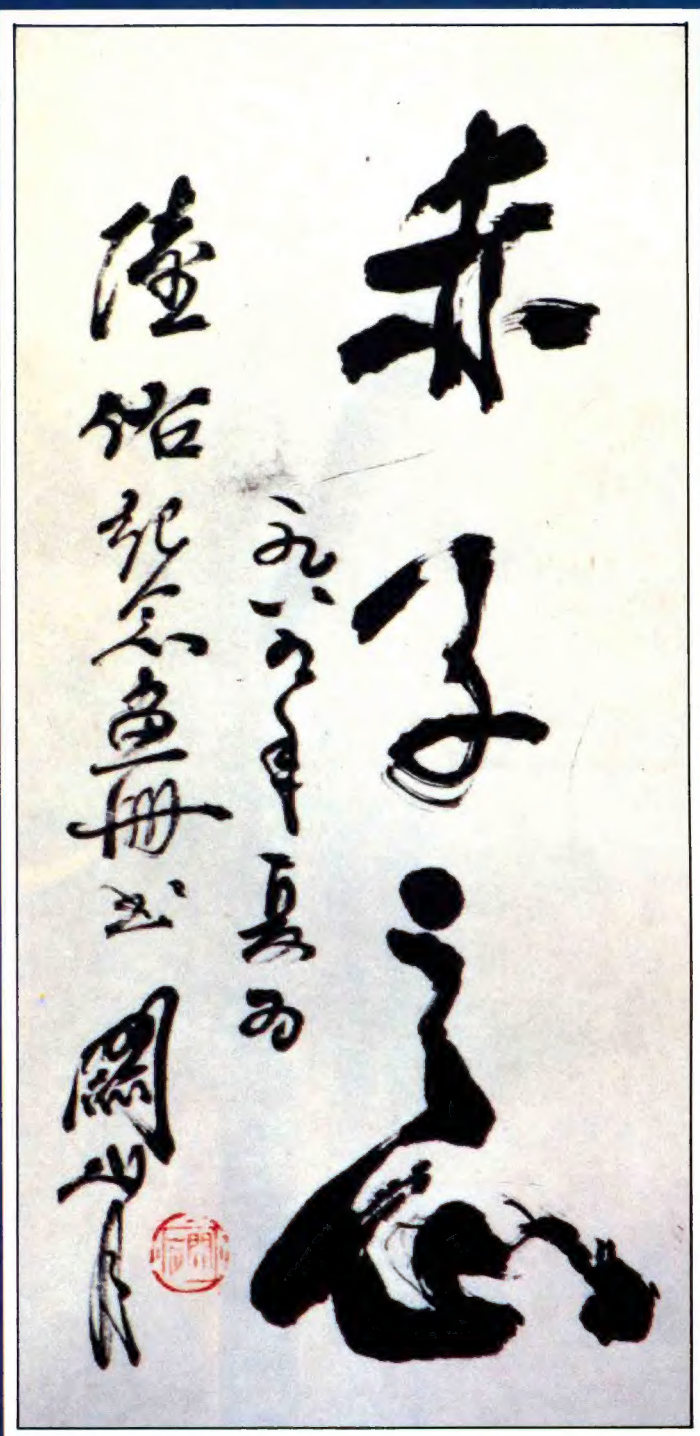 赤子之心
一九八九年夏为
陸佑紀念畫册书 關山月